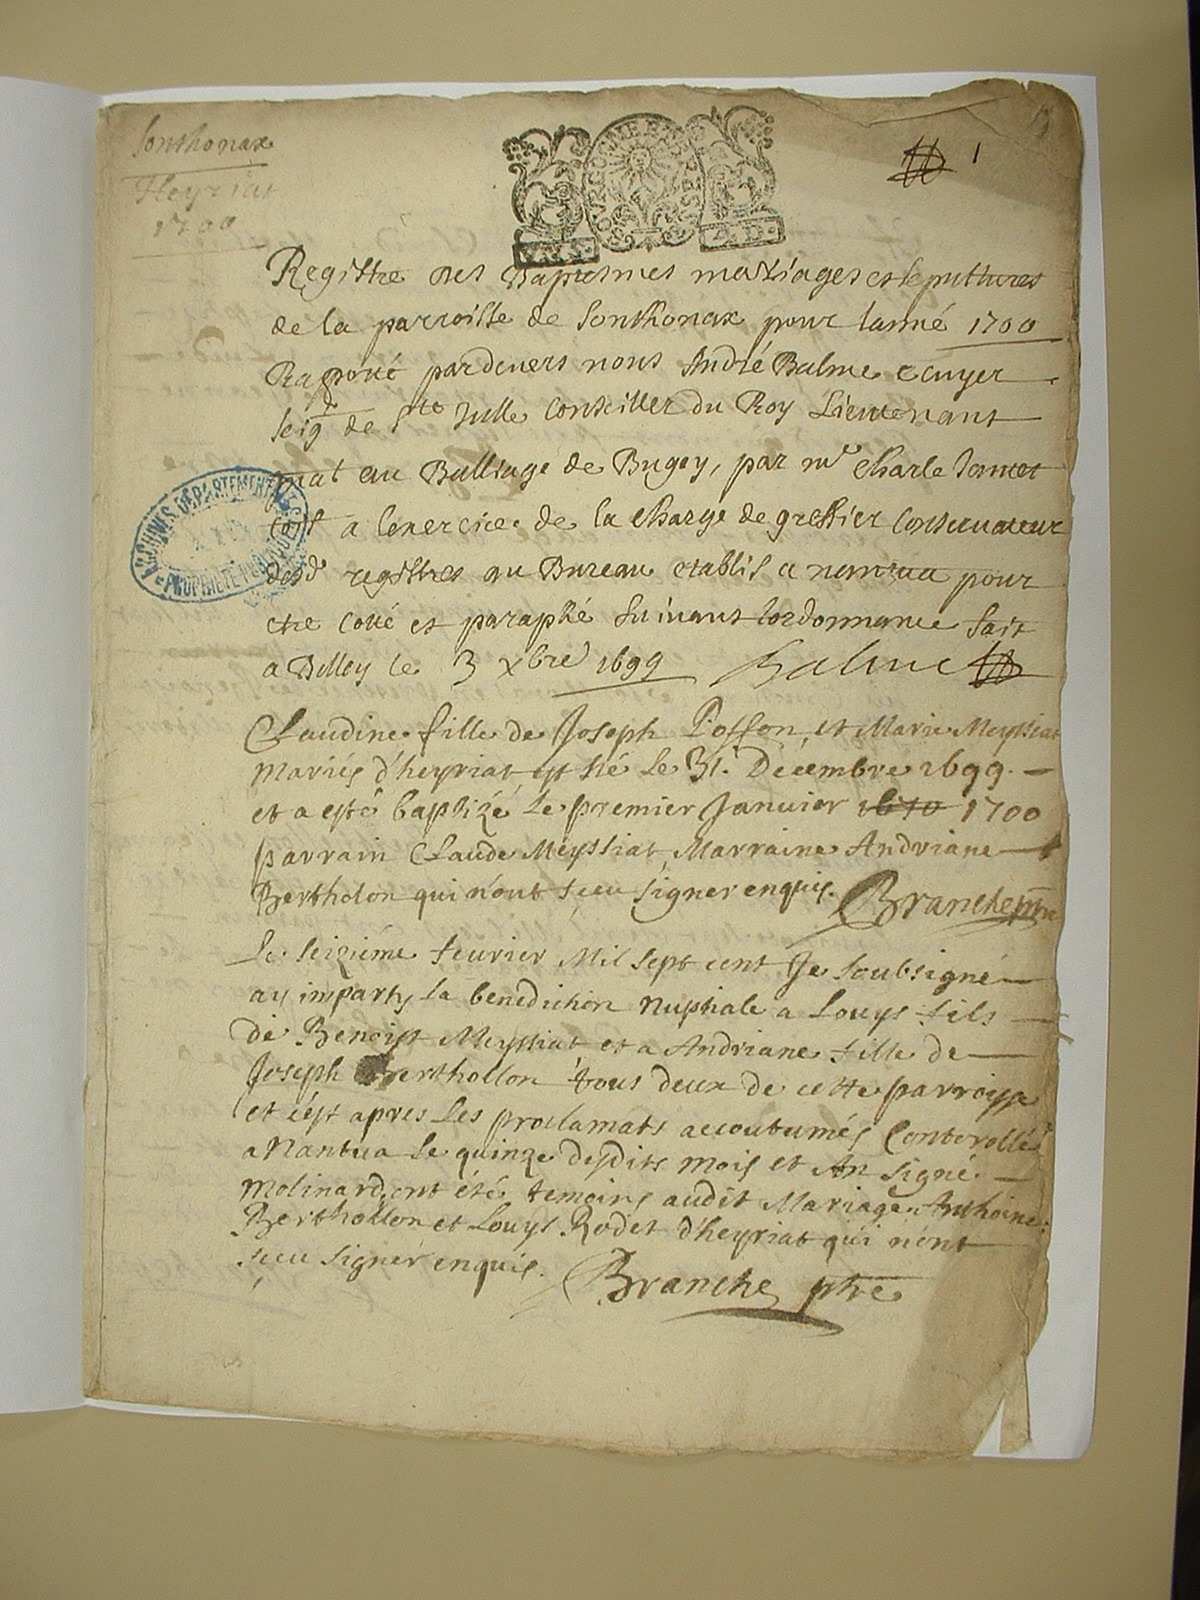 Sonthonax
Heyriat
1700
1
Registre des Baptesmes mariages et sepultures
de la parroisse de Sonthonax pour lanné 1700
Raporté pardevers nous André Balme ecuyer
seigr de Ste Julle Conseiller du Roy Lieutenant
au Balliage de Bugey, par me Charle
a lexercice de la Charge de greffier Conservateur
desd registres au Bureau etablis a nantua pour
etre Cotté et paraphé suivant lordonnance fait
a Belley le 3 xbre 1699 Balme
ARCHIVES DÉPARTEMENTALES
PROPRIÉTÉ PUBLIQUE
Claudine fille de Joseph Posson et Marie Meyssiat
mariés d'heyriat est né le 31. Decembre 1699.
et a esté baptizé le premier Janvier 1700
parrain Claude Meyssiat Marraine Andriane
Bertholon qui n'ont sceu signer enquis. Branche ptre
Le seizième fevrier Mil sept cent Je soubsigné
ay imparty la benediction nuptiale a Louys fils
de Benoist Meyssiat et a Andriane fille de
Joseph Berthollon tous deux de cette parroisse
et c'est apres les proclamats accoutumés Controllé
a Nantua le quinze desdits mois et An signé
Molinard, ont été temoins audit Mariage Anthoine
Berthollon et Louys Rodet d'heyriat qui n'ont
sceu signer enquis. Branche ptre